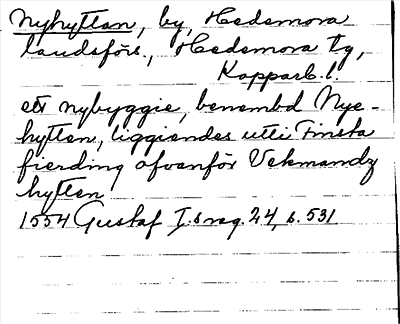 Nyhyttan, by, Hedemora
landsförs., Hedemora tg,
Kopparb. l.
ett nybyggie, benembd Nye-
hytten, liggiendes utti Finsta
fierding ofvanför Vekmandz
hytten
1554 Gustaf I:s reg. 24, s. 531